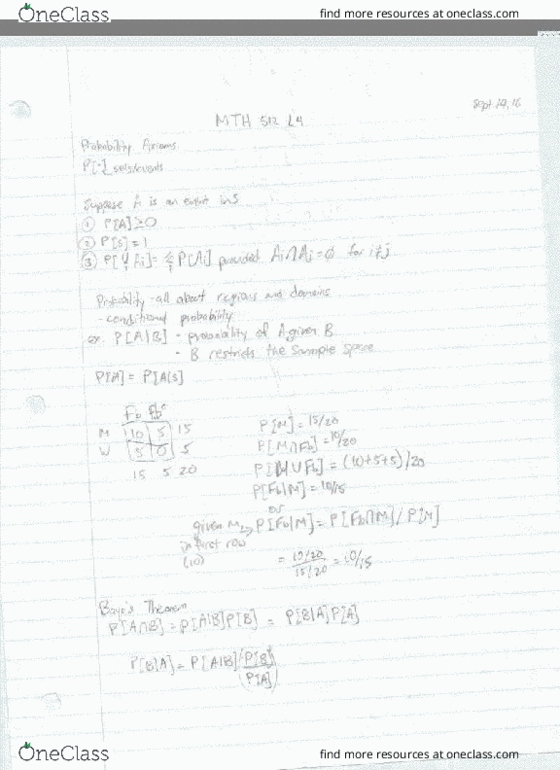 OneClass
find more resources at oneclass.com
Sept 19, 16
MTH 512 L4
Probability Axioms
P[·] sets/events
Suppose A is an event in S
① P[A]≥0
② P[S]=1
③ P[∪ Ai]= Σ P[Ai] provided Ai∩Aj=∅ for i≠j
Probability - all about regions and domains
- conditional probability
ex P[A|B] • probability of A given B
• B restricts the sample space
P[A] = P[A|S]
Fb Fbᶜ
M 10 5 15
W 5 0 5
15 5 20
P[M]=15/20
P[M∩Fb]=10/20
P[M∪Fb]=(10+5+5)/20
P[Fb|M]=10/15
or
given M → P[Fb|M]= P[Fb∩M]/P[M]
in first row
(10)
= 10/20 / 15/20 = 10/15
Baye's Theorem
P[A∩B] = P[A|B]P[B] = P[B|A]P[A]
P[B|A] = P[A|B] (P[B] / P[A])
OneClass
find more resources at oneclass.com